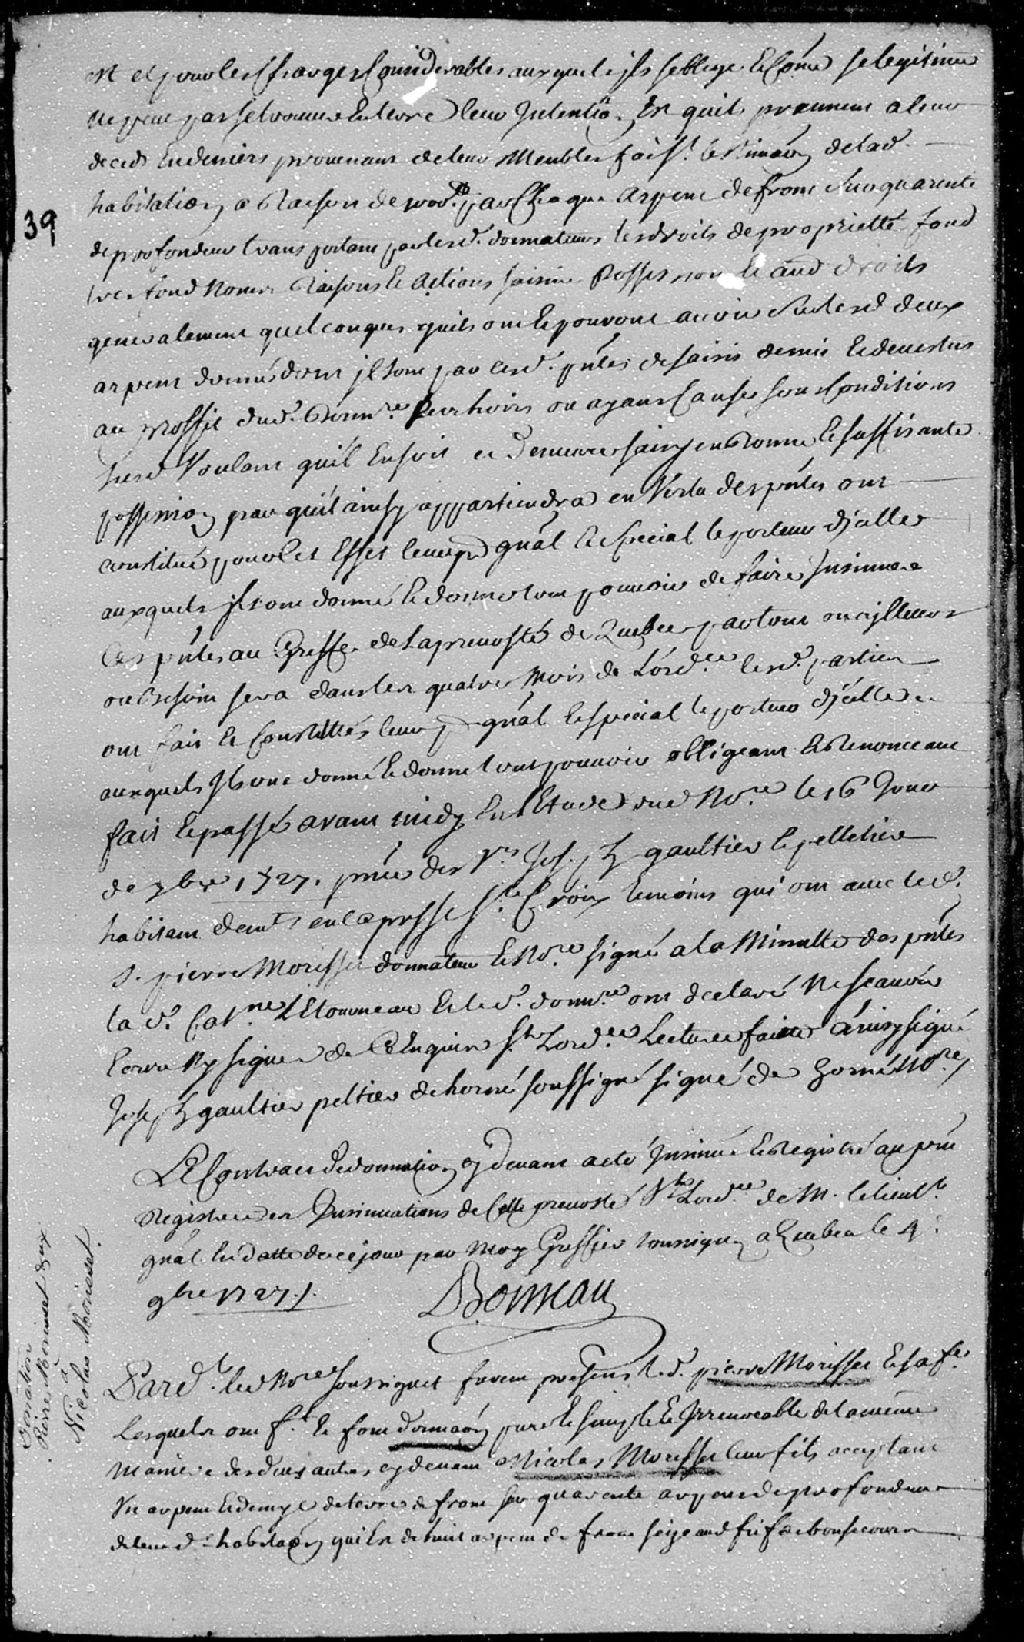 et pour les charges Considerables auxquels ils soblige Et Comme se legitime
ne peut pas se trouver En terre leur Intention Est quils prennent a leur
deceds En deniers provenant de leurs Meubles faist. lestimaon de lad.
habitation a Raison de par Chaque Arpent de front Sur quarente
39
de profondeur transportant par lesd. donnateurs les droits de propriette fond
tres fond Noms Raisons Et Actions saisine Possession Et aud droits
generalement quelconques quils ont Et pouvont avoir Sur lesd deux
arpent donnés dont ils sont par lesd. pntes desaisis demis Et devestus
au proffit dud. donnre. hoirs ou ayans Causes sous Conditions
Susd Voulant quil En soit et demeure saisy en bonne Et suffisante
possession par quil ainsy appartiendra en Vertu des pntes ont
constitué pour Cet Effet leur p gnal Et special le porteur dicelles
auxquels ils ont donné Et donnent tout pouvoir de faire Insinuer
Ces pntes au Greffe de la prevosté de Quebec partout ou ailleurs
ou besoin sera dans les quatre Mois de Lordce. lesd. parties
ont fait Et Constitués leur p gnal Et special le porteur dicelles
auxquels Ils ont donné Et donne tout pouvoir obligeant Et Renonceant
fait Et passé avant midy En lEtude dud Nore. le 16 Jour
de 7bre 1727. pnce des Srs Joseph gaultier Et pelletier
habitant demts en la Ste Croix temoins qui ont avec led.
S. pierre Morisset donnateur Et Nore signé a la Minutte des pntes
la d. Catne LEtourneau Et led. donnre ont declaré Ne scavoir
Ecrire Ny signer de Ce Enquis St Lordce Lecture faitte ainsy signé
Joseph gaultier peltier de horné soussigné signé de horné Nore

Le Contract de donnation cy devant a eté Insinué Et Registré au pnt
Registre des Insinuations de Cette prevosté St Lordce de M. le lieutt
gnal En datte de ce jour par Moy Greffier soussigné a Quebec le 4
9bre 1727 ./.
Boisseau

Donation
Pierre Morisset deux
à
Nicolas Morisset.

Pard.t led Nore soussignet furent present led. pierre Morisset Et sa fe.
Lesquels ont f.t Et font donnaon pure Et simple Et Irrevocable de la meme
Maniere des deux autres cy devant a Nicolas Morisset leur fils acceptant
Un arpent Et demye de terre de front sur quarente arpent de profondeur
de leur de. habitaon qui Est de huit arpent de front seize aud fief de bonsecours